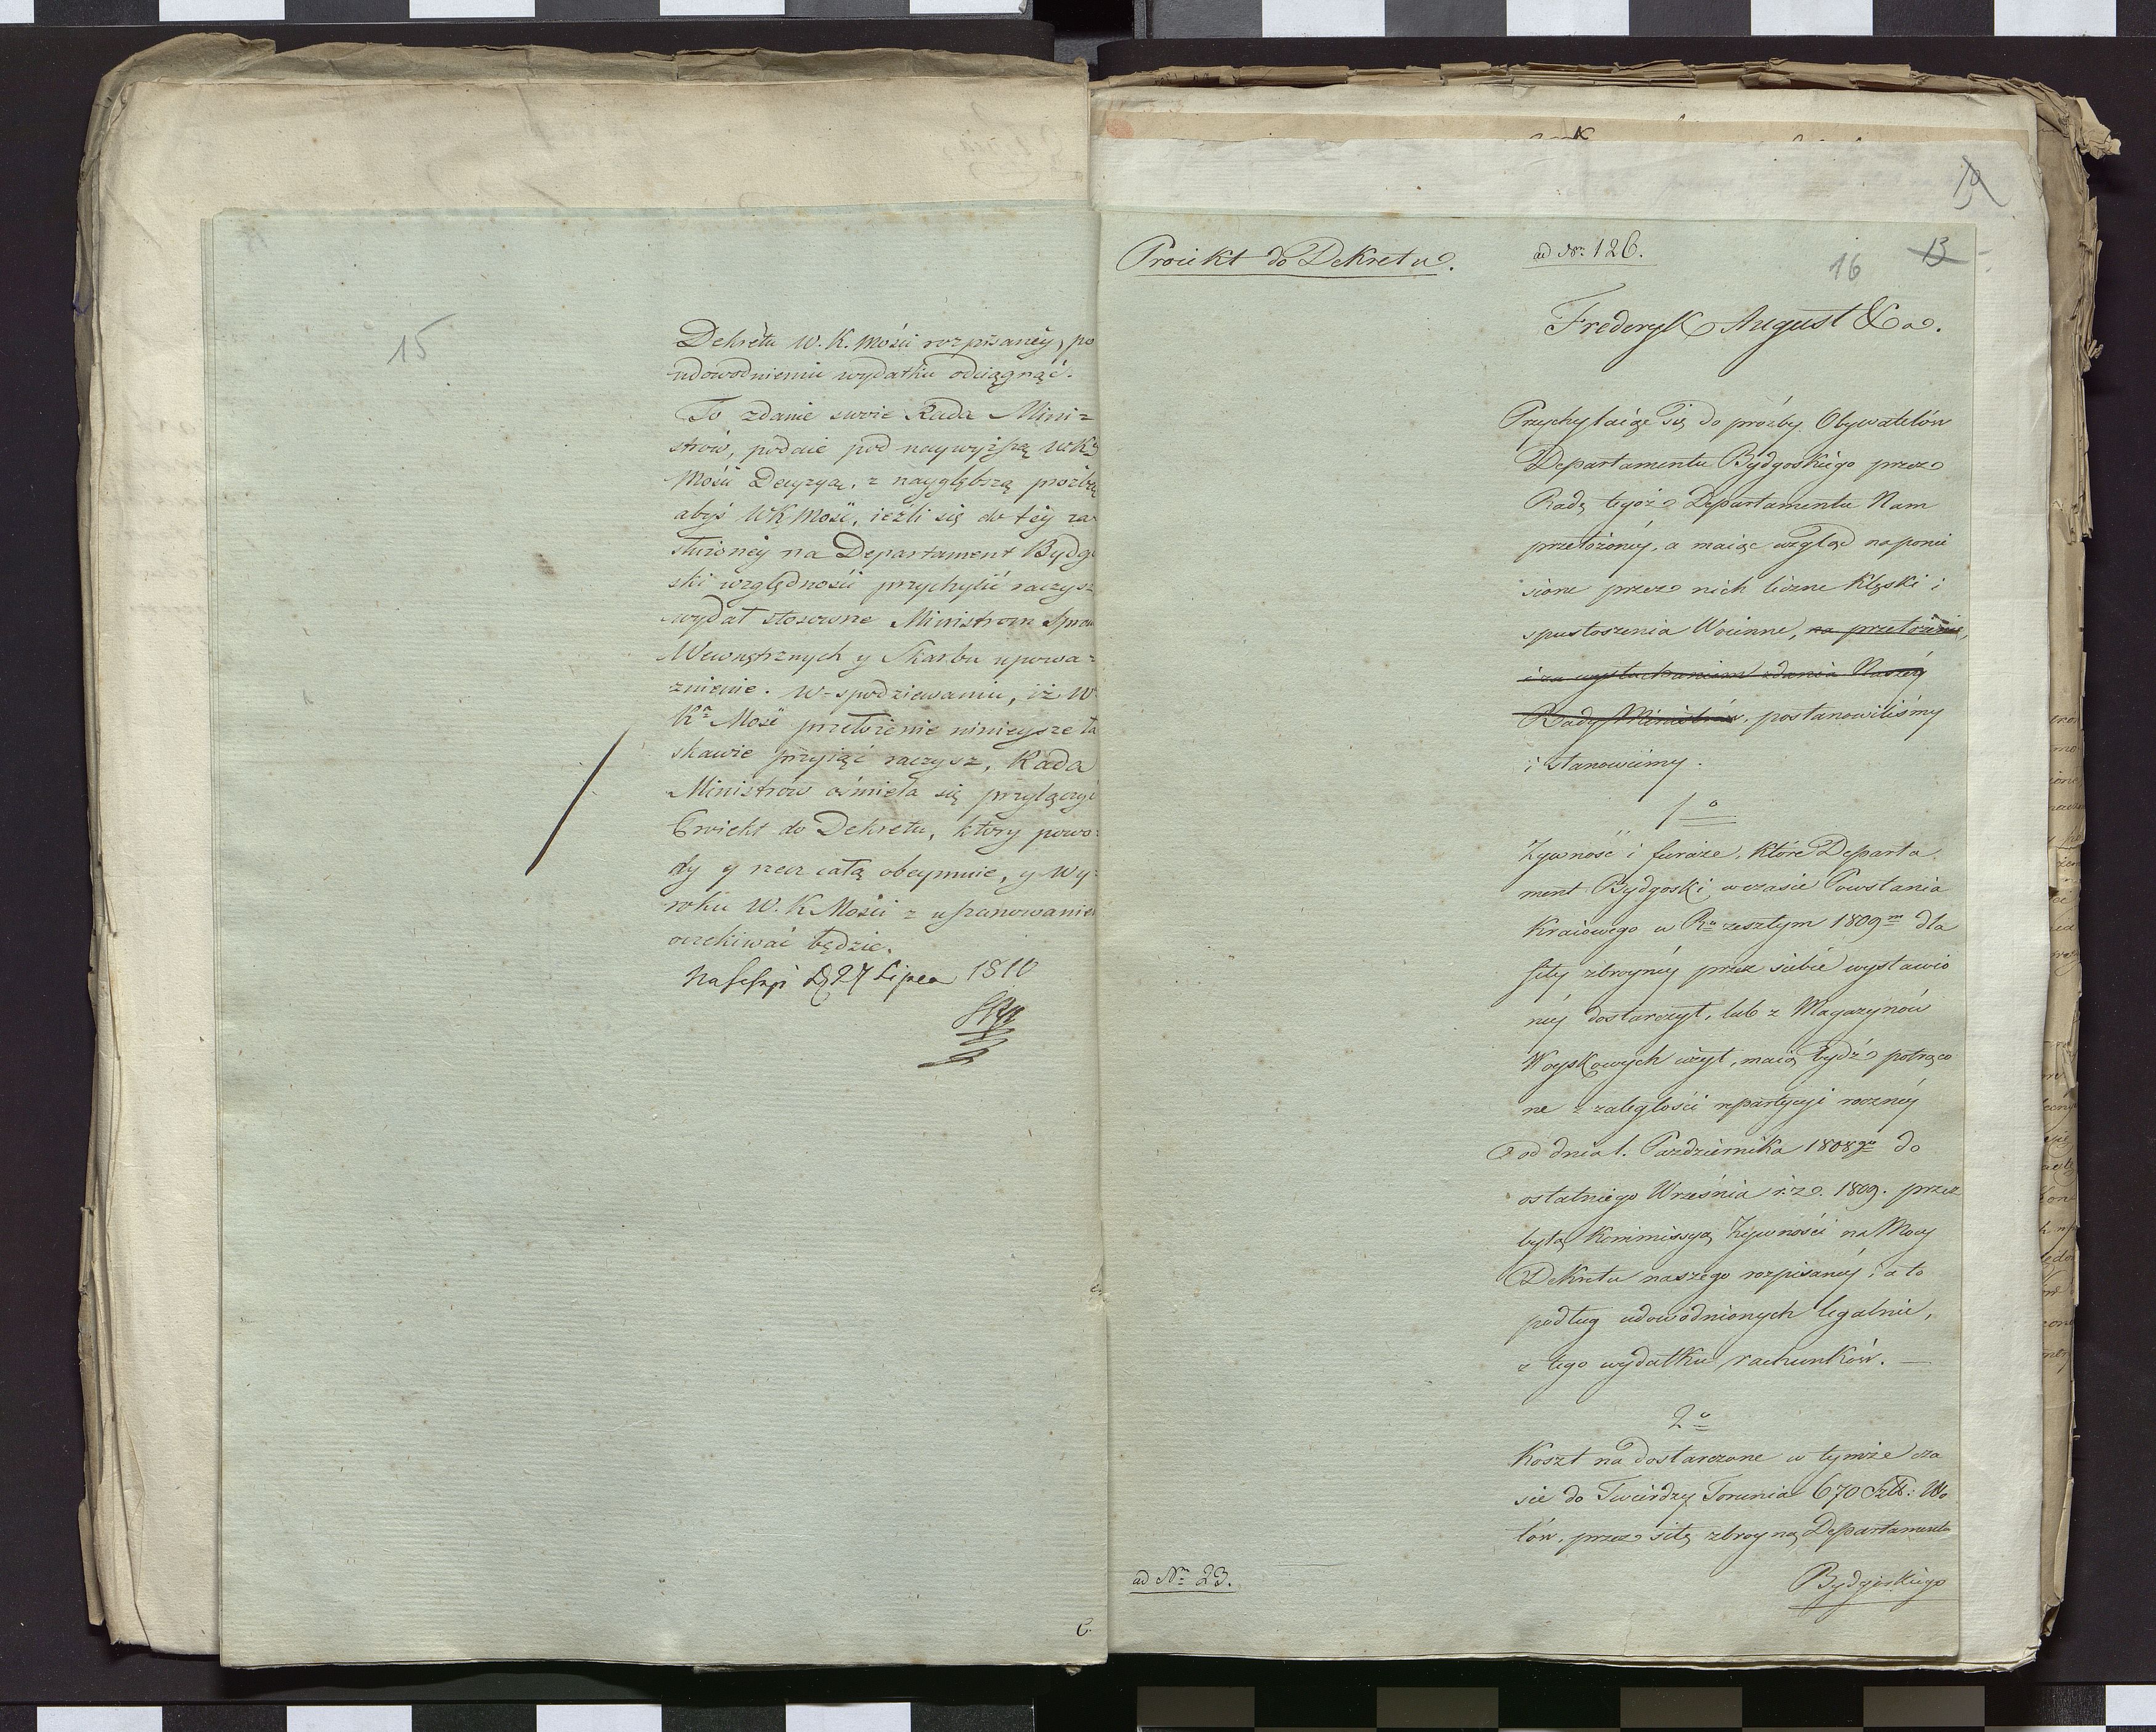 15
Dekretu W. K. Mości rozpisaney, po
udowodnieniu wydatku odciągnąć.
To zdanie swoie Rada Mini=
strów, podaie pod naywyższą WK
Mości Decyzyą, z naygłębszą prozbą
abyś WK Mość, ieźli się do tey za
służoney na Departament Bydgo
ski względności przychylić raczysz
wydał stosowne Ministrom Spraw
Wewnętrznych y Skarbu upowa=
żnienie. W spodziewaniu, iż W
Ka Mość przełożenie ninieysze ła
skawie przyiąć raczysz, Rada
Ministrow ośmiela się przyłączyć
Proiekt do Dekretu, ktory powo=
dy y rzecz całą obeymuie, y Wy=
roku W. K Mości z uszanowaniem
oczekiwać będzie.
Na Sessyi D. 27 Lipca 1810
Proiekt do Dekretu.
ad Nr. 126.
16
13
Fredryk August &a.
Przychylaiąc się do prozby Obywatelów
Departamentu Bydgoskiego przez
Radę tegoż Departamentu Nam
przełożoney, a maiąc wzgląd na ponie
sione przez nich liczne klęski i
spustoszenia Woienne, na przełożenie,
i za wysłuchaniem zdania Naszey
Rady Ministrów, postanowiliśmy
i stanowiemy.
1o
Zywność i furaże, które Departa
ment Bydgoski w czasie Powstania
Kraiowego w Ru zeszłym 1809m dla
siły zbroyney przez siebie wystawio
ney dostarczył, lub z Magazynów
Woyskowych użył, maią bydź potrąco
ne z zaległości repartycyi roczney
od dnia 1. Pazdziernika 1808go do
ostatniego Września r. z. 1809. przez
byłą Kommissyą Zywności na Mocy
Dekretu naszego rozpisaney; a to
podług udowodnionych legalnie,
z tego wydatku rachunków. —
2o
Koszt na dostarczone w tymże cza
sie do Twierdzy Torunia 670 Szt: Wo
łów, przez siłę zbroyną Departamentu
Bydgoskiego
ad Nr. 23.